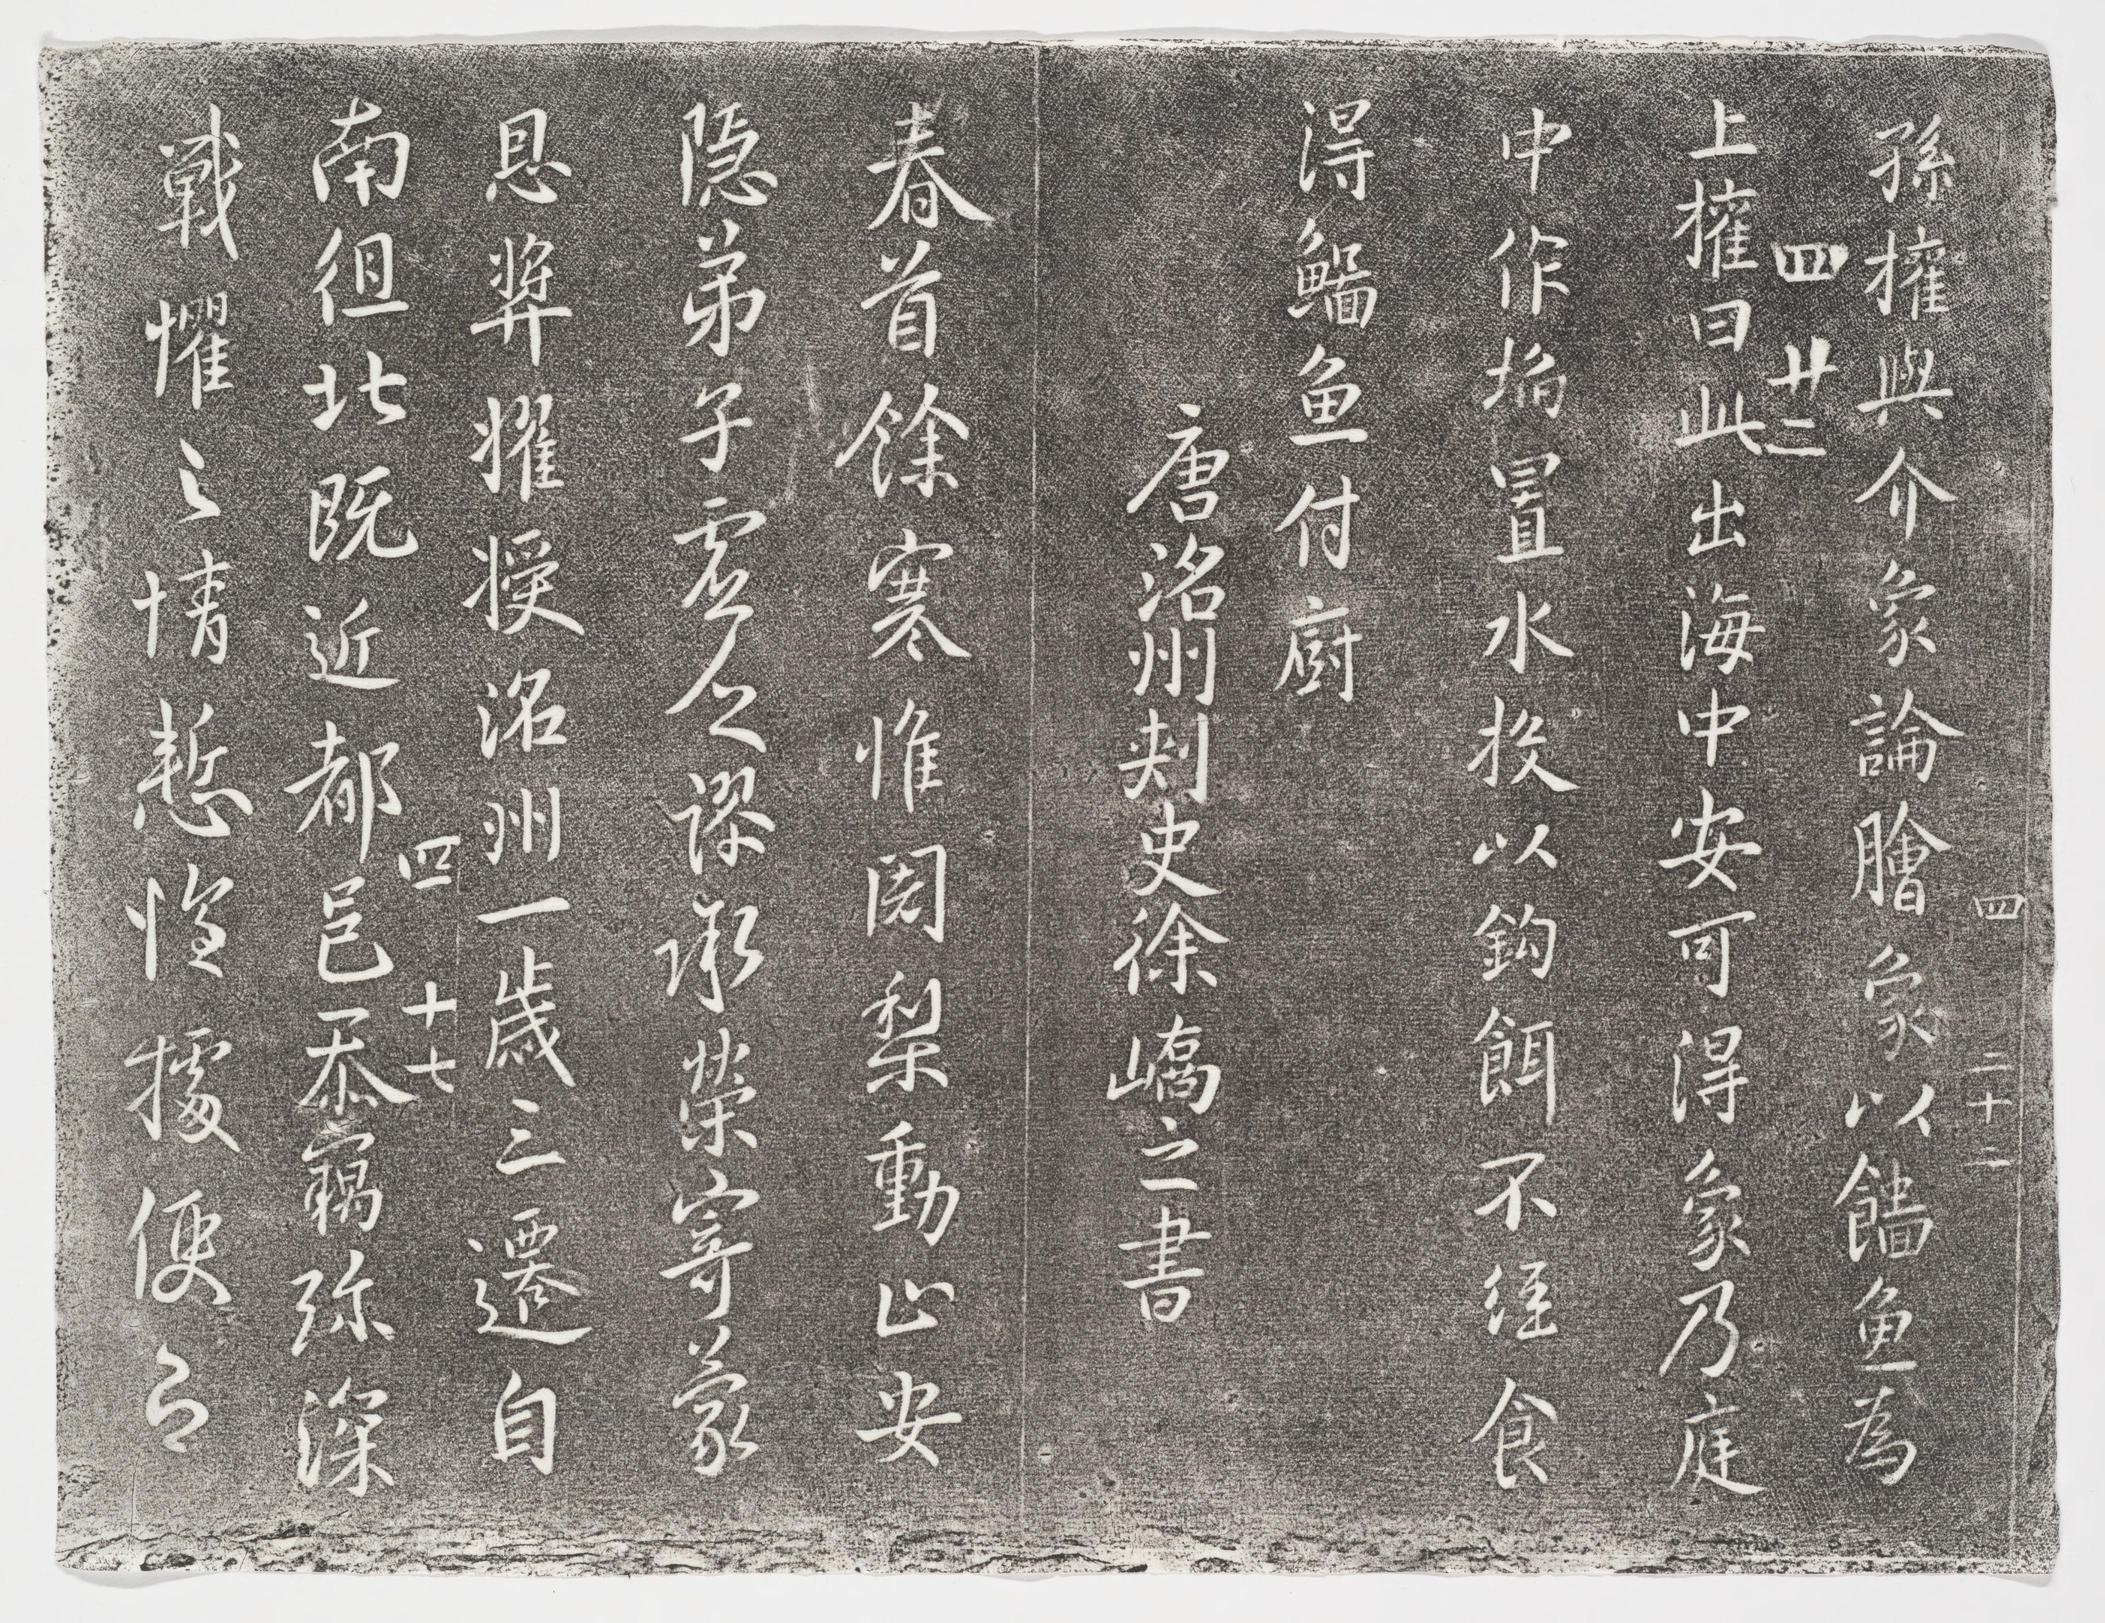 四 二十二
孫摧與介象論膾象以鯔魚為
四 廿二
上摧曰此出海中安可得象乃庭
中作埳置水投以鈎餌不經食
得鯔魚付廚
唐洺州刾史徐嶠之書
春首餘寒惟闍梨動止安
隱弟子虛乏謬承榮寄蒙
恩弊擢授洺州一歲三遷自
四 十七
南徂北既近都邑忝竊弥深
戰懼之情慙惶據便即